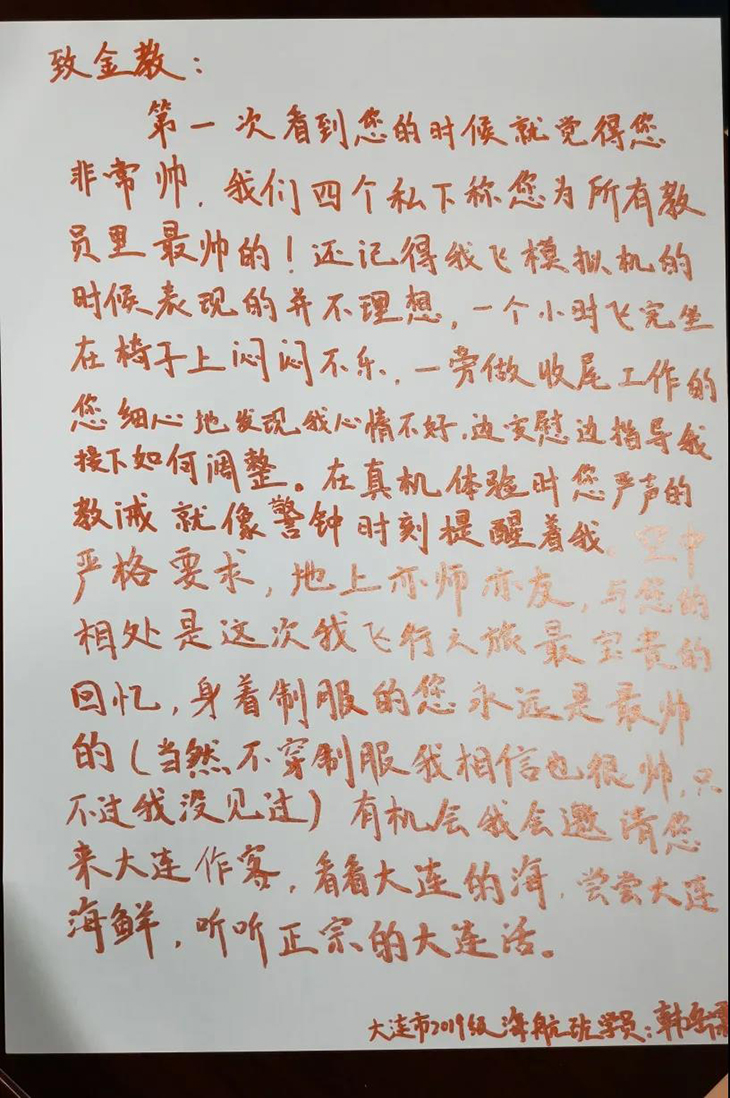 致金教：
第一次看到您的时候就觉得您
非常帅，我们四个私下称您为所有教
员里最帅的！还记得我飞模拟机的
时候表现的并不理想，一个小时飞完坐
在椅子上闷闷不乐，一旁做收尾工作的
您细心地发现我心情不好，边安慰边指导我
接下如何调整。在真机体验时您严声的
教诫就像警钟时刻提醒着我。空中
严格要求，地上亦师亦友，与您的
相处是这次我飞行之旅最宝贵的
回忆，身着制服的您永远是最帅
的（当然不穿制服我相信也很帅，只
不过我没见过）有机会我会邀请您
来大连作客，看看大连的海，尝尝大连
海鲜，听听正宗的大连话。
大连市2019级海航班学员：韩